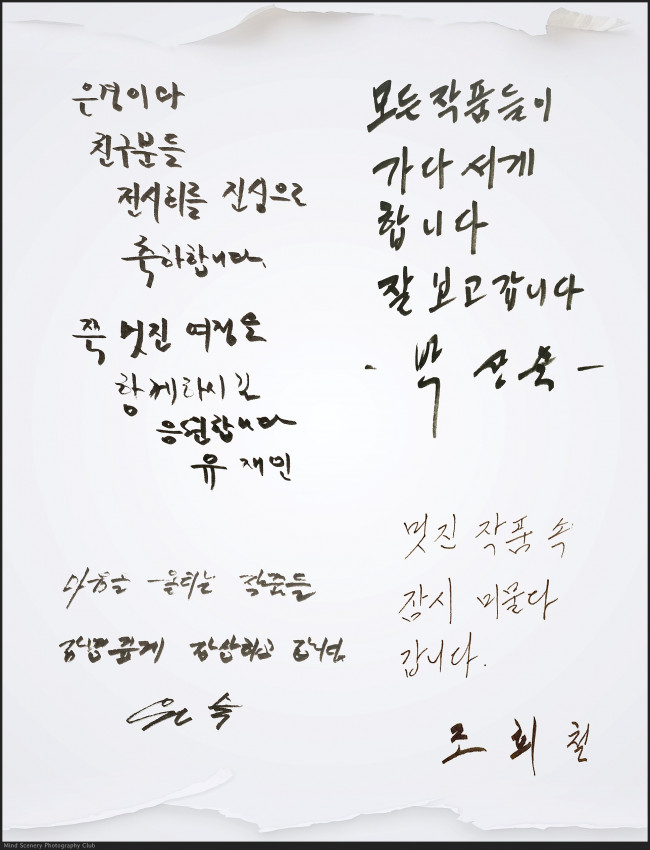 은경이와
친구분들
전시회를 진심으로
축하합니다.
쭉 멋진 여정을
함께하시길
응원합니다
유재민
마음을 울리는 작품들
감상하고 갑니다
은숙
모든 작품들이
가다서게
합니다
잘 보고갑니다
- 박선욱 -
멋진 작품 속
잠시 머물다
갑니다.
조희철
Mind Scenery Photography Club